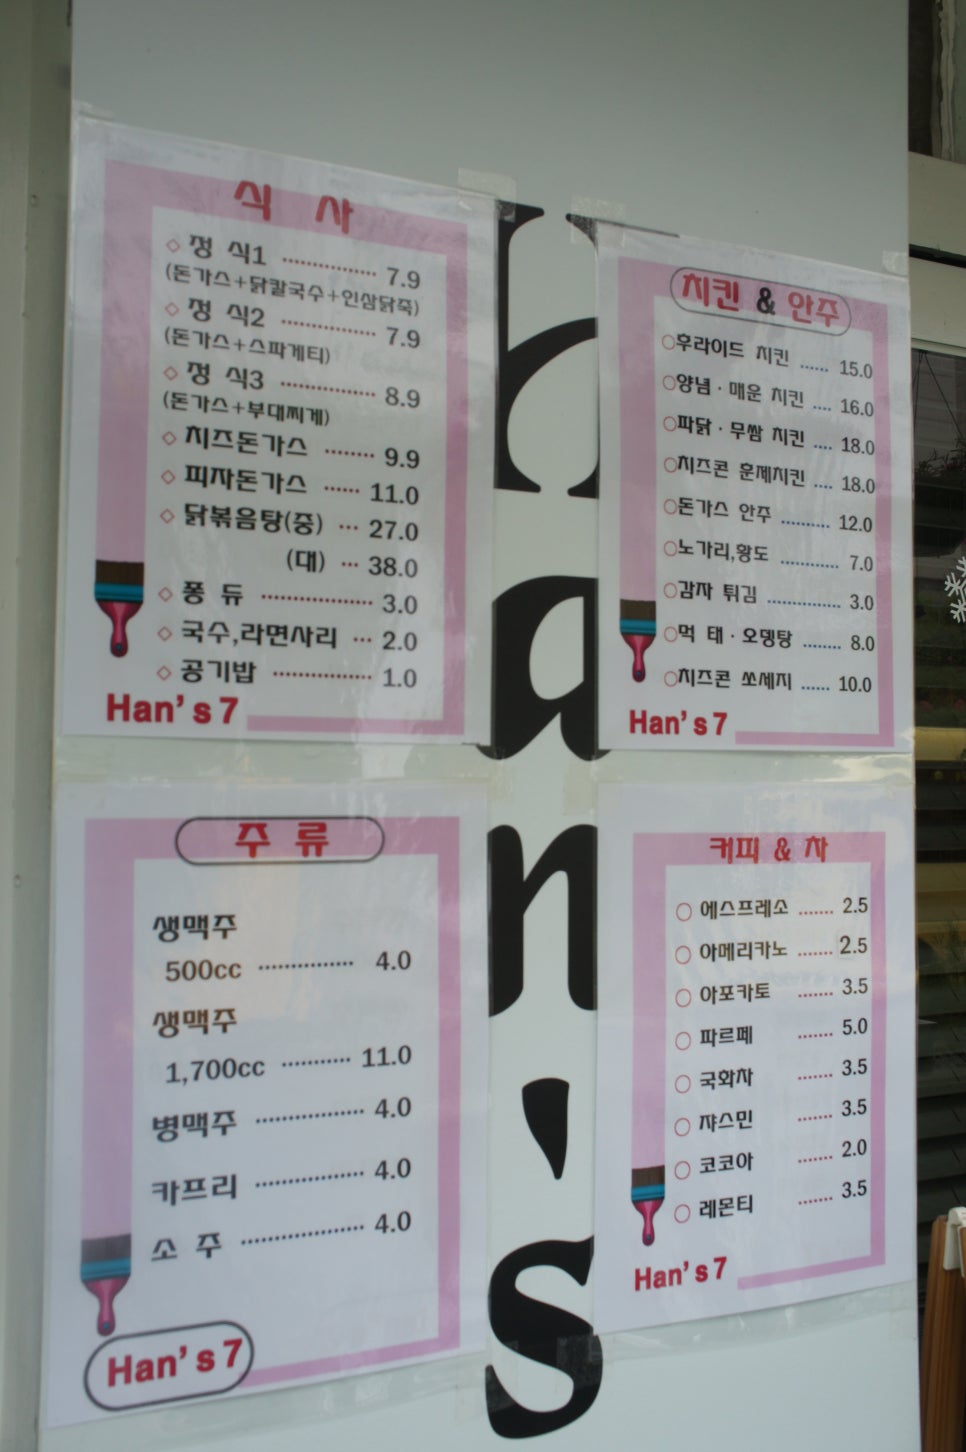 식 사
◇ 정 식1 ................ 7.9
(돈가스+닭칼국수+인삼닭죽)
◇ 정 식2 ................ 7.9
(돈가스+스파게티)
◇ 정 식3 ................ 8.9
(돈가스+부대찌개)
◇ 치즈돈가스 ........ 9.9
◇ 피자돈가스 ...... 11.0
◇ 닭볶음탕(중) ... 27.0
(대) ... 38.0
◇ 퐁 듀 ................... 3.0
◇ 국수,라면사리 ... 2.0
◇ 공기밥 ................ 1.0
Han's 7
치킨 & 안주
○후라이드 치킨 ...... 15.0
○양념·매운 치킨 .... 16.0
○파닭·무쌈 치킨 .... 18.0
○치즈콘 훈제치킨 .... 18.0
○돈가스 안주 .......... 12.0
○노가리,황도 ............ 7.0
○감자 튀김 ............... 3.0
○먹 태·오뎅탕 ........ 8.0
○치즈콘 쏘세지 ...... 10.0
Han's 7
주 류
생맥주
500cc ................ 4.0
생맥주
1,700cc ........... 11.0
병맥주 ................ 4.0
카프리 ................ 4.0
소 주 .................. 4.0
Han's 7
커피 & 차
○ 에스프레소 ....... 2.5
○ 아메리카노 ....... 2.5
○ 아포카토 ....... 3.5
○ 파르페 ....... 5.0
○ 국화차 ....... 3.5
○ 쟈스민 ....... 3.5
○ 코코아 ....... 2.0
○ 레몬티 ....... 3.5
Han's 7
han's